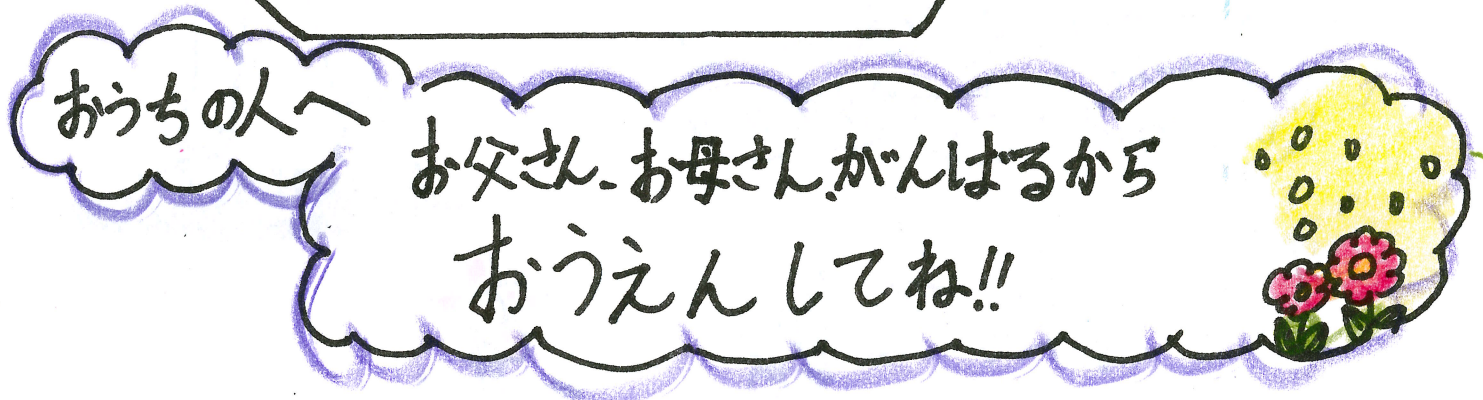 おうちの人へ
お父さん、お母さん、がんばるから
おうえんしてね!!